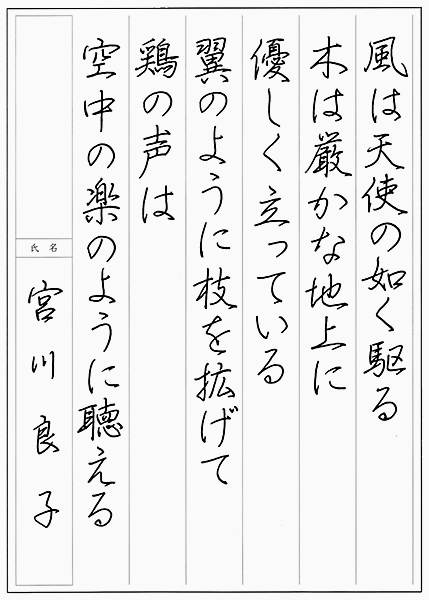 風は天使の如く駆る
木は厳かな地上に
優しく立っている
翼のように枝を拡げて
鶏の声は
空中の楽のように聴える
氏名
宮川良子